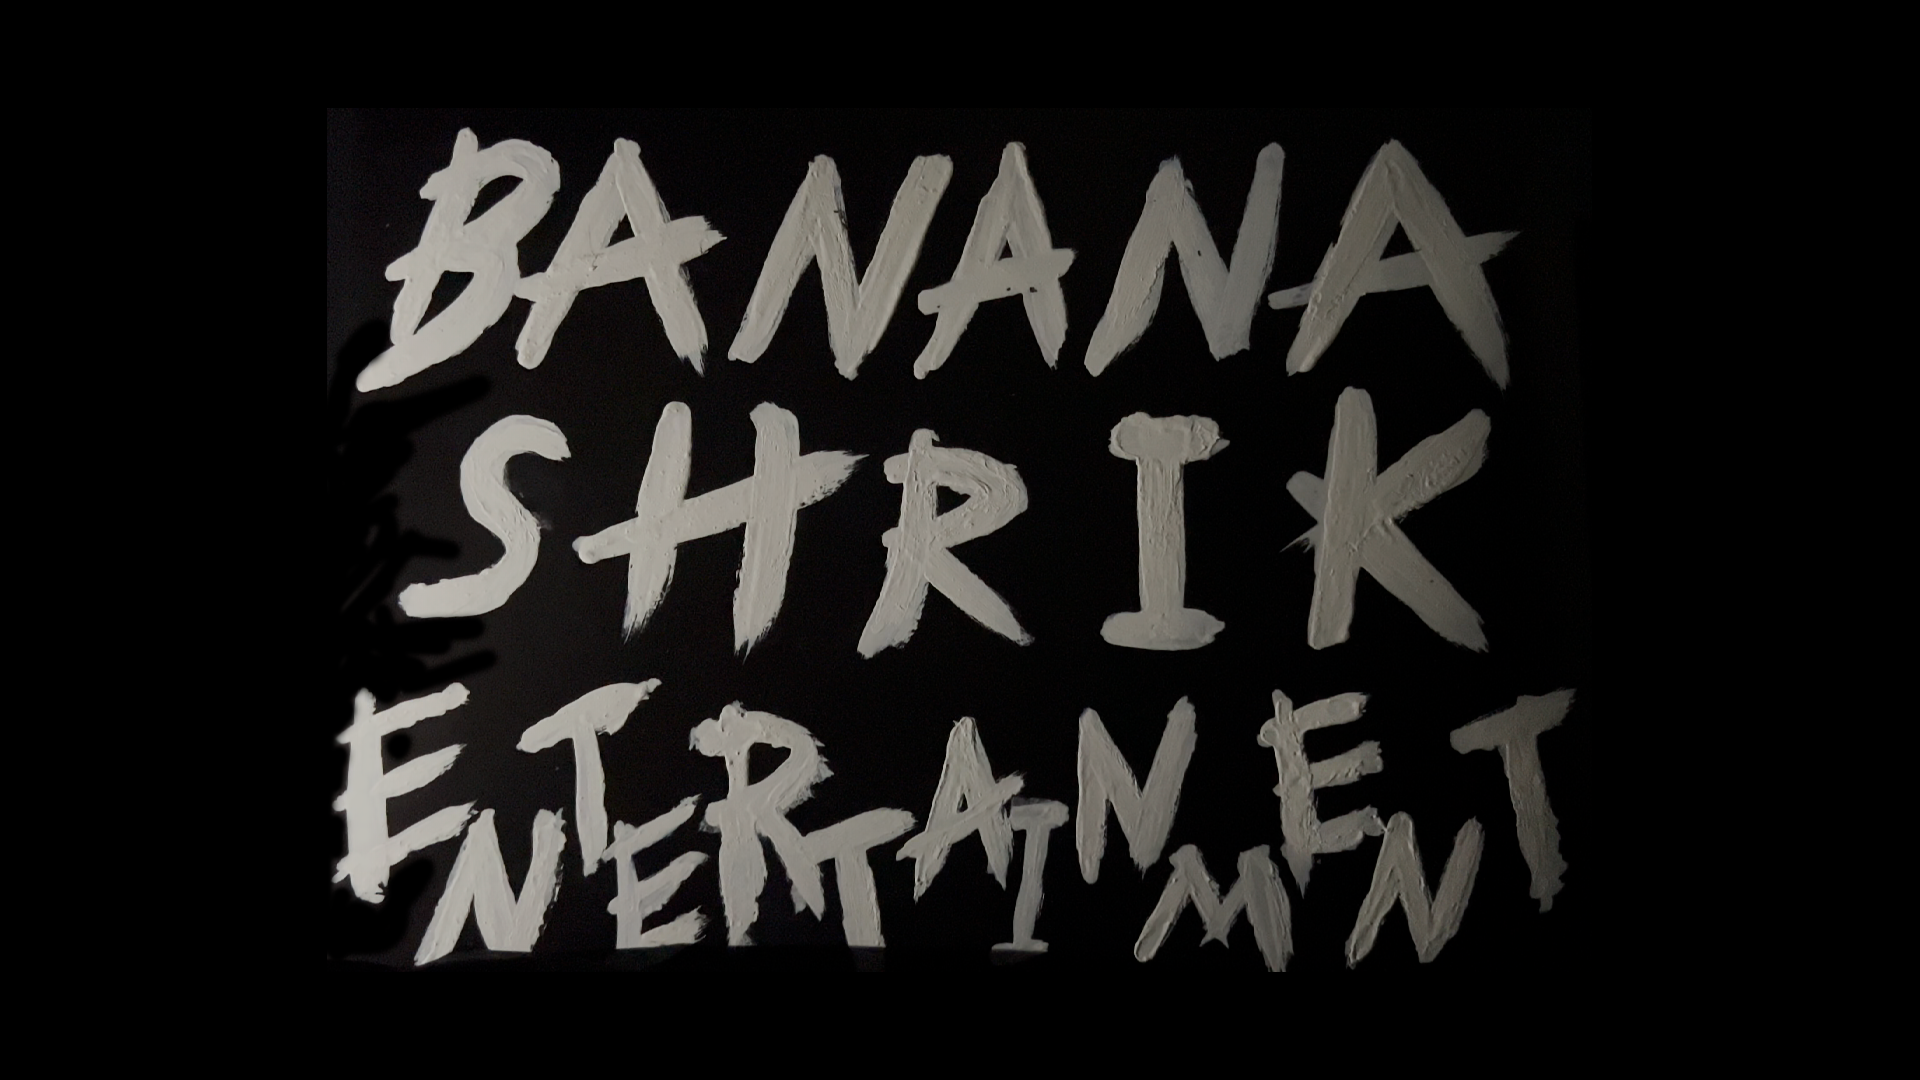 BANANA
SHRIK
ENTERTAINMENT